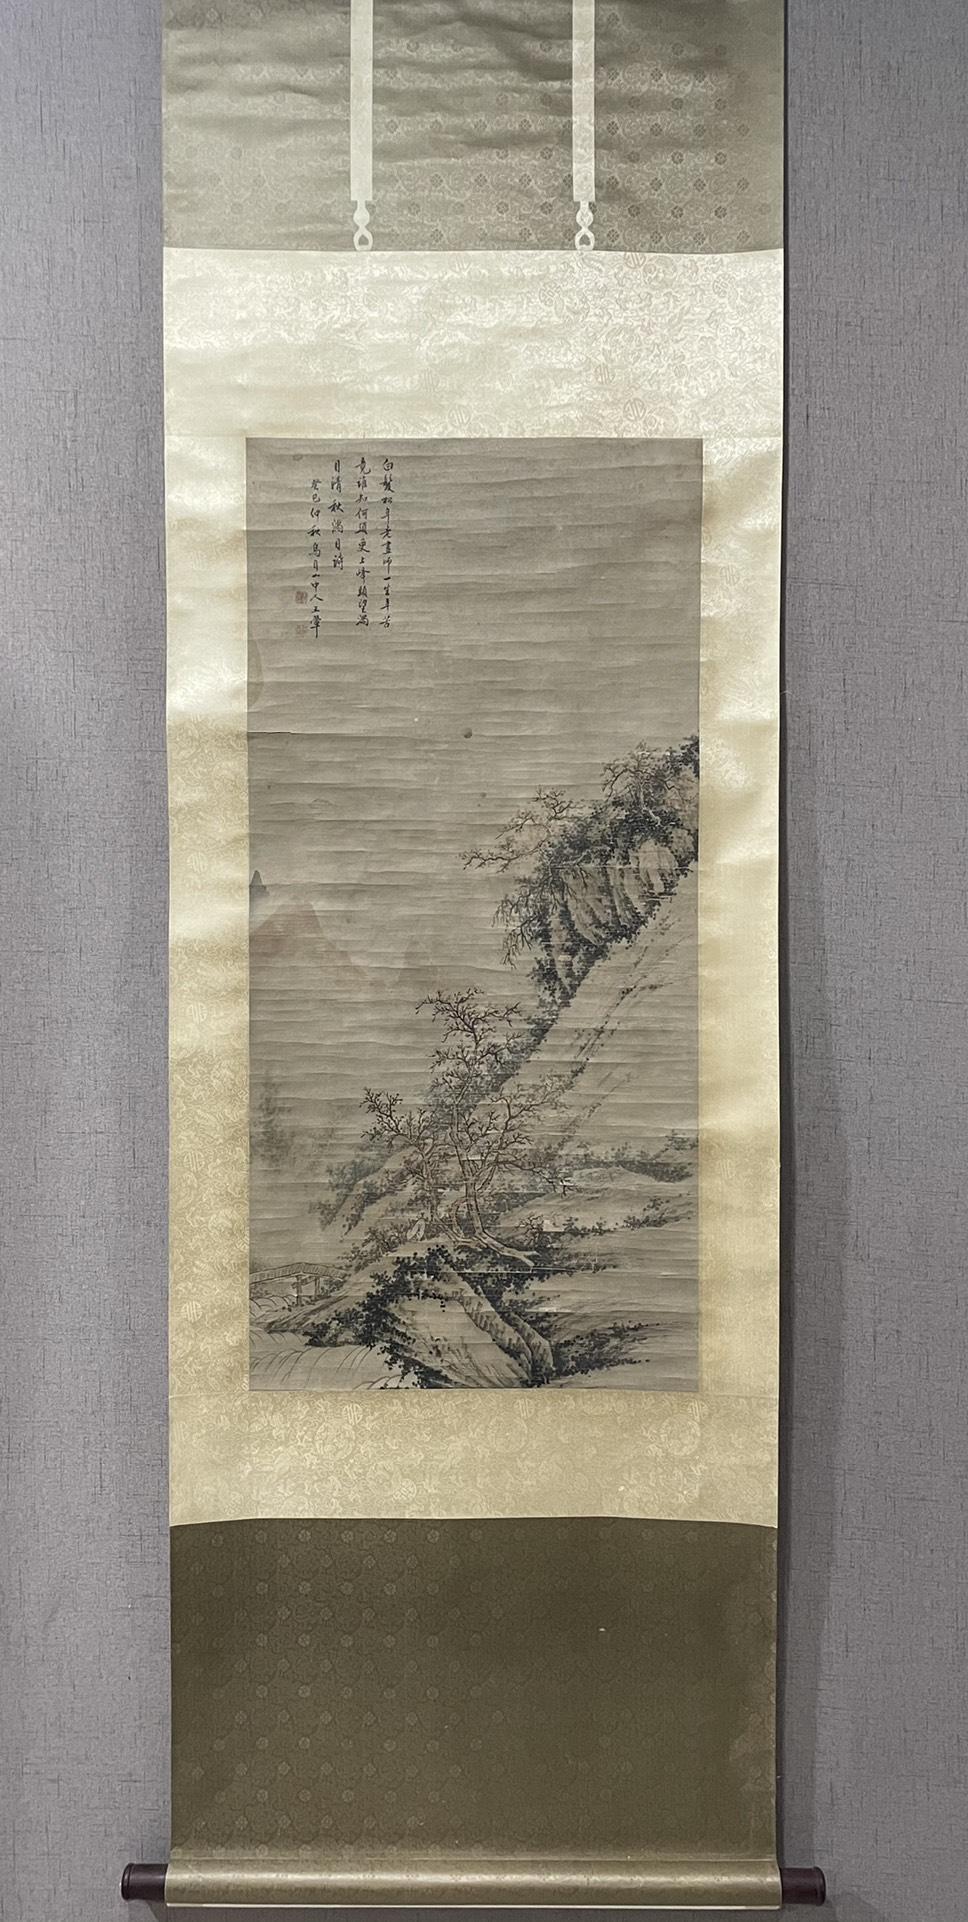 白髮松年老畫師一生辛苦
竟誰知何須更上峰頭望滿
目清秋滿目詩
癸巳仲秋烏目山中人王翬